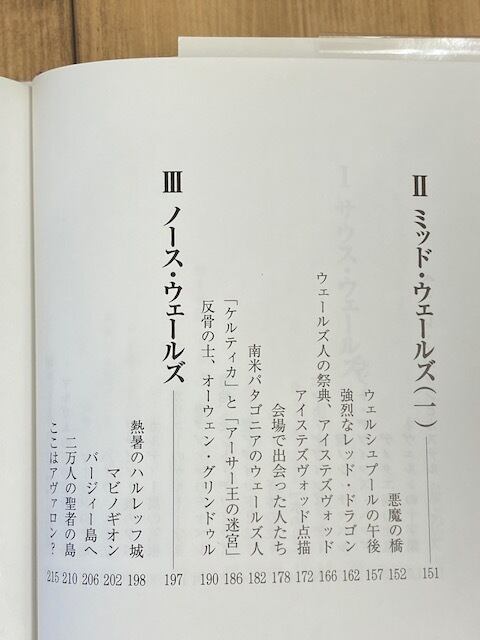 Ⅱ ミッド・ウェールズ(一) 151
悪魔の橋 152
ウェルシュプールの午後 157
強烈なレッド・ドラゴン 162
ウェールズ人の祭典、アイステズヴォッド 166
アイステズヴォッド点描 172
会場で出会った人たち 178
南米パタゴニアのウェールズ人 182
「ケルティカ」と「アーサー王の迷宮」 186
反骨の士、オーウェン・グリンドゥル 190
Ⅲ ノース・ウェールズ 197
熱暑のハルレッフ城 198
マビノギオン 202
バージィー島へ 206
二万人の聖者の島 210
ここはアヴァロン? 215